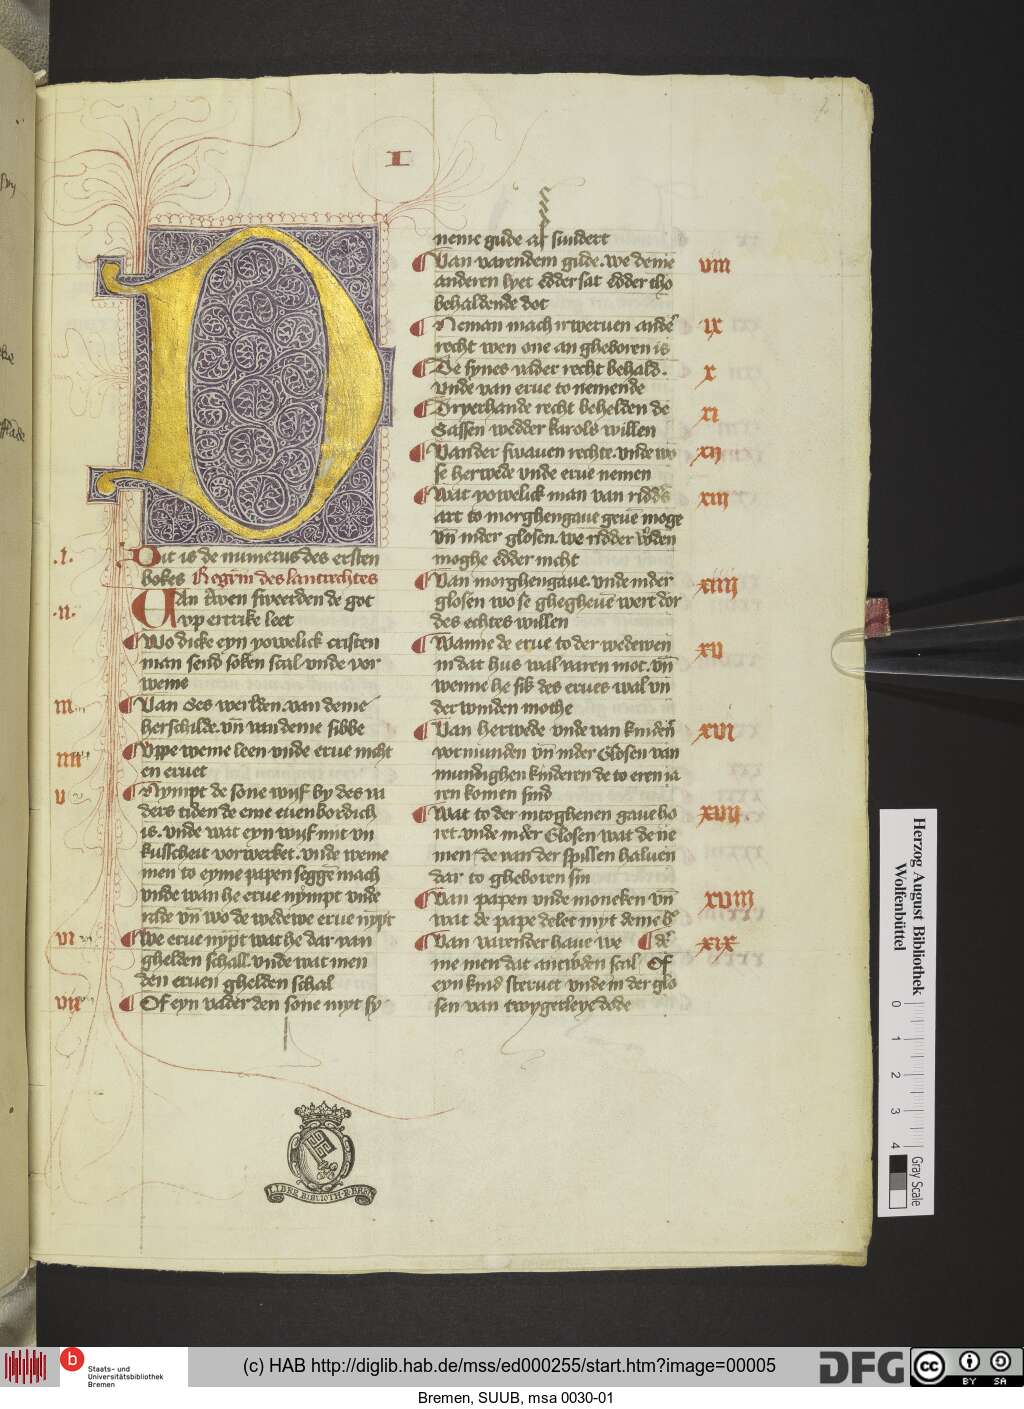 I
Dit is de numerus des ersten
bokes Registrum des lantrechtes
.I. Uan twen sweerden de got
.II. up ertrike leet
Wo dicke eyn yowelick cristen
man send soken scal vnde vor
weme
III Uan Ses werlden. van deme
herschilde. vn̄ van deme sibbe
IIII Vppe weme leen vnde erue nicht
en eruet
V Nympt de sone wijf by des va
ders tiden de eme euenbordich
is. vnde wat eyn wijf mit vn
kusscheit vorwerket. vnde weme
men to eyme papen seggē mach
vnde wan he erue nympt vnde
rade vn̄ wo de wedewe erue nȳpt
VI We erue nȳpt wat he dar van
ghelden schall. vnde wat men
den eruen ghelden schal
VII Of eyn vader den sone myt sy
neme gude af sundert
Uan varendem gude. we deme VIII
anderen lyet edder sat edder tho
behaldende dot
Neman mach irweruen ander IX
recht wen one an gheboren is
De synes vader recht behald. X
vnde van erue to nemende
Dryerhande recht behelden de XI
Sassen wedder karols willen
Van der swauen rechte. vnde wo XII
se herwede vnde erue nemen
Wat yowelick man van ridders XIII
art to morghengaue geuē moge
vn̄ in der glosen. we ridder werden
moghe edder nicht
Van morghengaue. vnde in der XIIII
glosen wo se ghegheuē wert dor
des echtes willen
Wanne de erue to der wedewen XV
in dat hus wal varen mot. vn̄
wenne he sik des erues wal vn
der winden mothe
Van herwede vnde van kinderē XVI
vormunden vn̄ in der Glosen van
mundighen kinderen de to eren ia
ren komen sind
Wat to der mitoghenen gaue ho XVII
ret. vnde in der Glosen wat de ne
men de van der spillen haluen
dar to gheboren sin
Van papen vnde moneken vn̄ XVIII
wat de pape delet myt deme br
Van varender haue we der XIX
me men dat antworden scal Of
eyn kind steruet vnde in der glo
sen van twygerleye dode
LIBER BIBLIOTH. R. BREM
Herzog August Bibliothek
Wolfenbüttel
0 1 2 3 4
Gray Scale
b
Staats- und
Universitätsbibliothek
Bremen
(c) HAB http://diglib.hab.de/mss/ed000255/start.htm?image=00005
DFG
cc BY SA
Bremen, SUUB, msa 0030-01